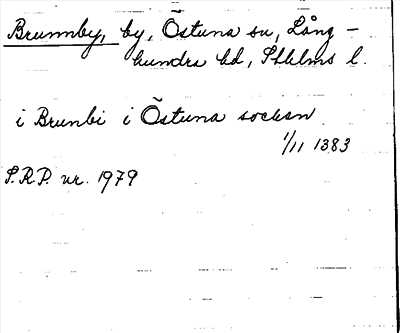 Brunnby, by, Östuna sn, Lång-
hundra hd, Sthlms l.
i Brunbi i Östuna socken
1/11 1383
S.R.P. nr. 1979